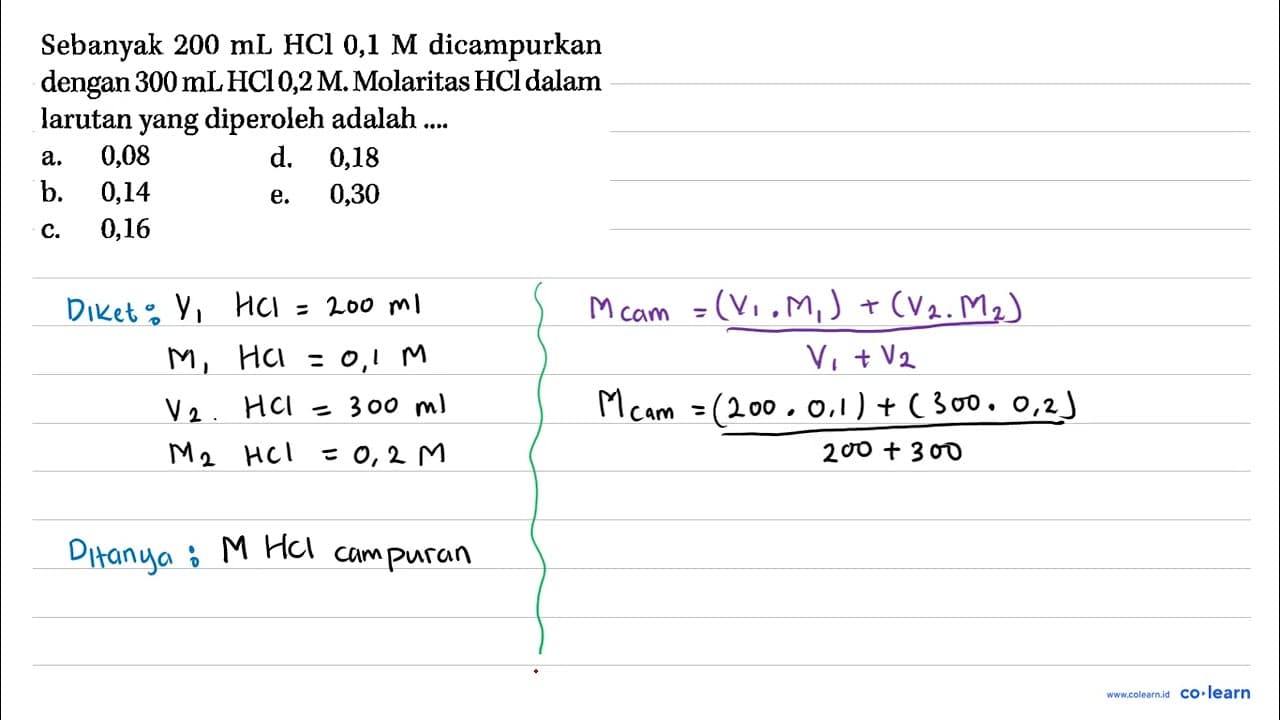 Sebanyak 200 mL HCl 0,1 M dicampurkan
dengan 300 mL HCl 0,2 M. Molaritas HCl dalam
larutan yang diperoleh adalah ....
a. 0,08 d. 0,18
b. 0,14 e. 0,30
c. 0,16
Diket : V₁ HCl = 200 ml
M₁ HCl = 0,1 M
V₂ . HCl = 300 ml
M₂ HCl = 0,2 M
Ditanya : M HCl campuran
M cam = (V₁ . M₁) + (V₂ . M₂)
V₁ + V₂
M cam = (200 . 0,1) + (300 . 0,2)
200 + 300
www.colearn.id co·learn